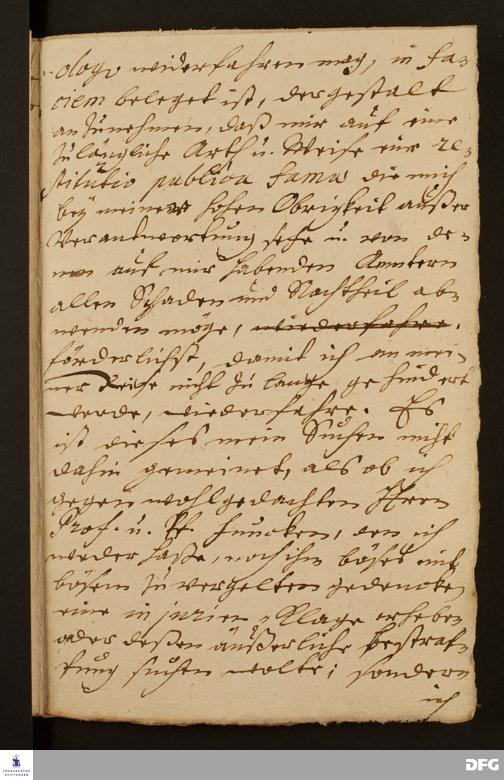 ologo widerfahren mag, in fa-
ciem beleget ist, dergestalt
anzunehmen, daß mir auf eine
zulängliche Arth u. Weise eine re-
stitutio publica famæ die mich
bey meiner hohen Obrigkeit außer
Verantwortung setze u. von de-
nen auf mir habenden Aemtern
allen Schaden und Nachtheil ab-
wenden möge, wiederfahre.
förderlichst, damit ich an mei-
ner Reise nicht zu lange gehindert
werde, wiederfahre. Es
ist dieses mein Suchen nicht
dahin gemeinet, als ob ich
gegen wohlgedachten Herrn
Prof. u. Funcken, den ich
weder haße, noch ihm böses mit
bösem zu vergelten gedencke,
eine injurien-Klage erheben
oder deßen äußerliche Bestraf-
fung suchen wolte; sondern
ich
FRANCKESCHE
STIFTUNGEN
DFG